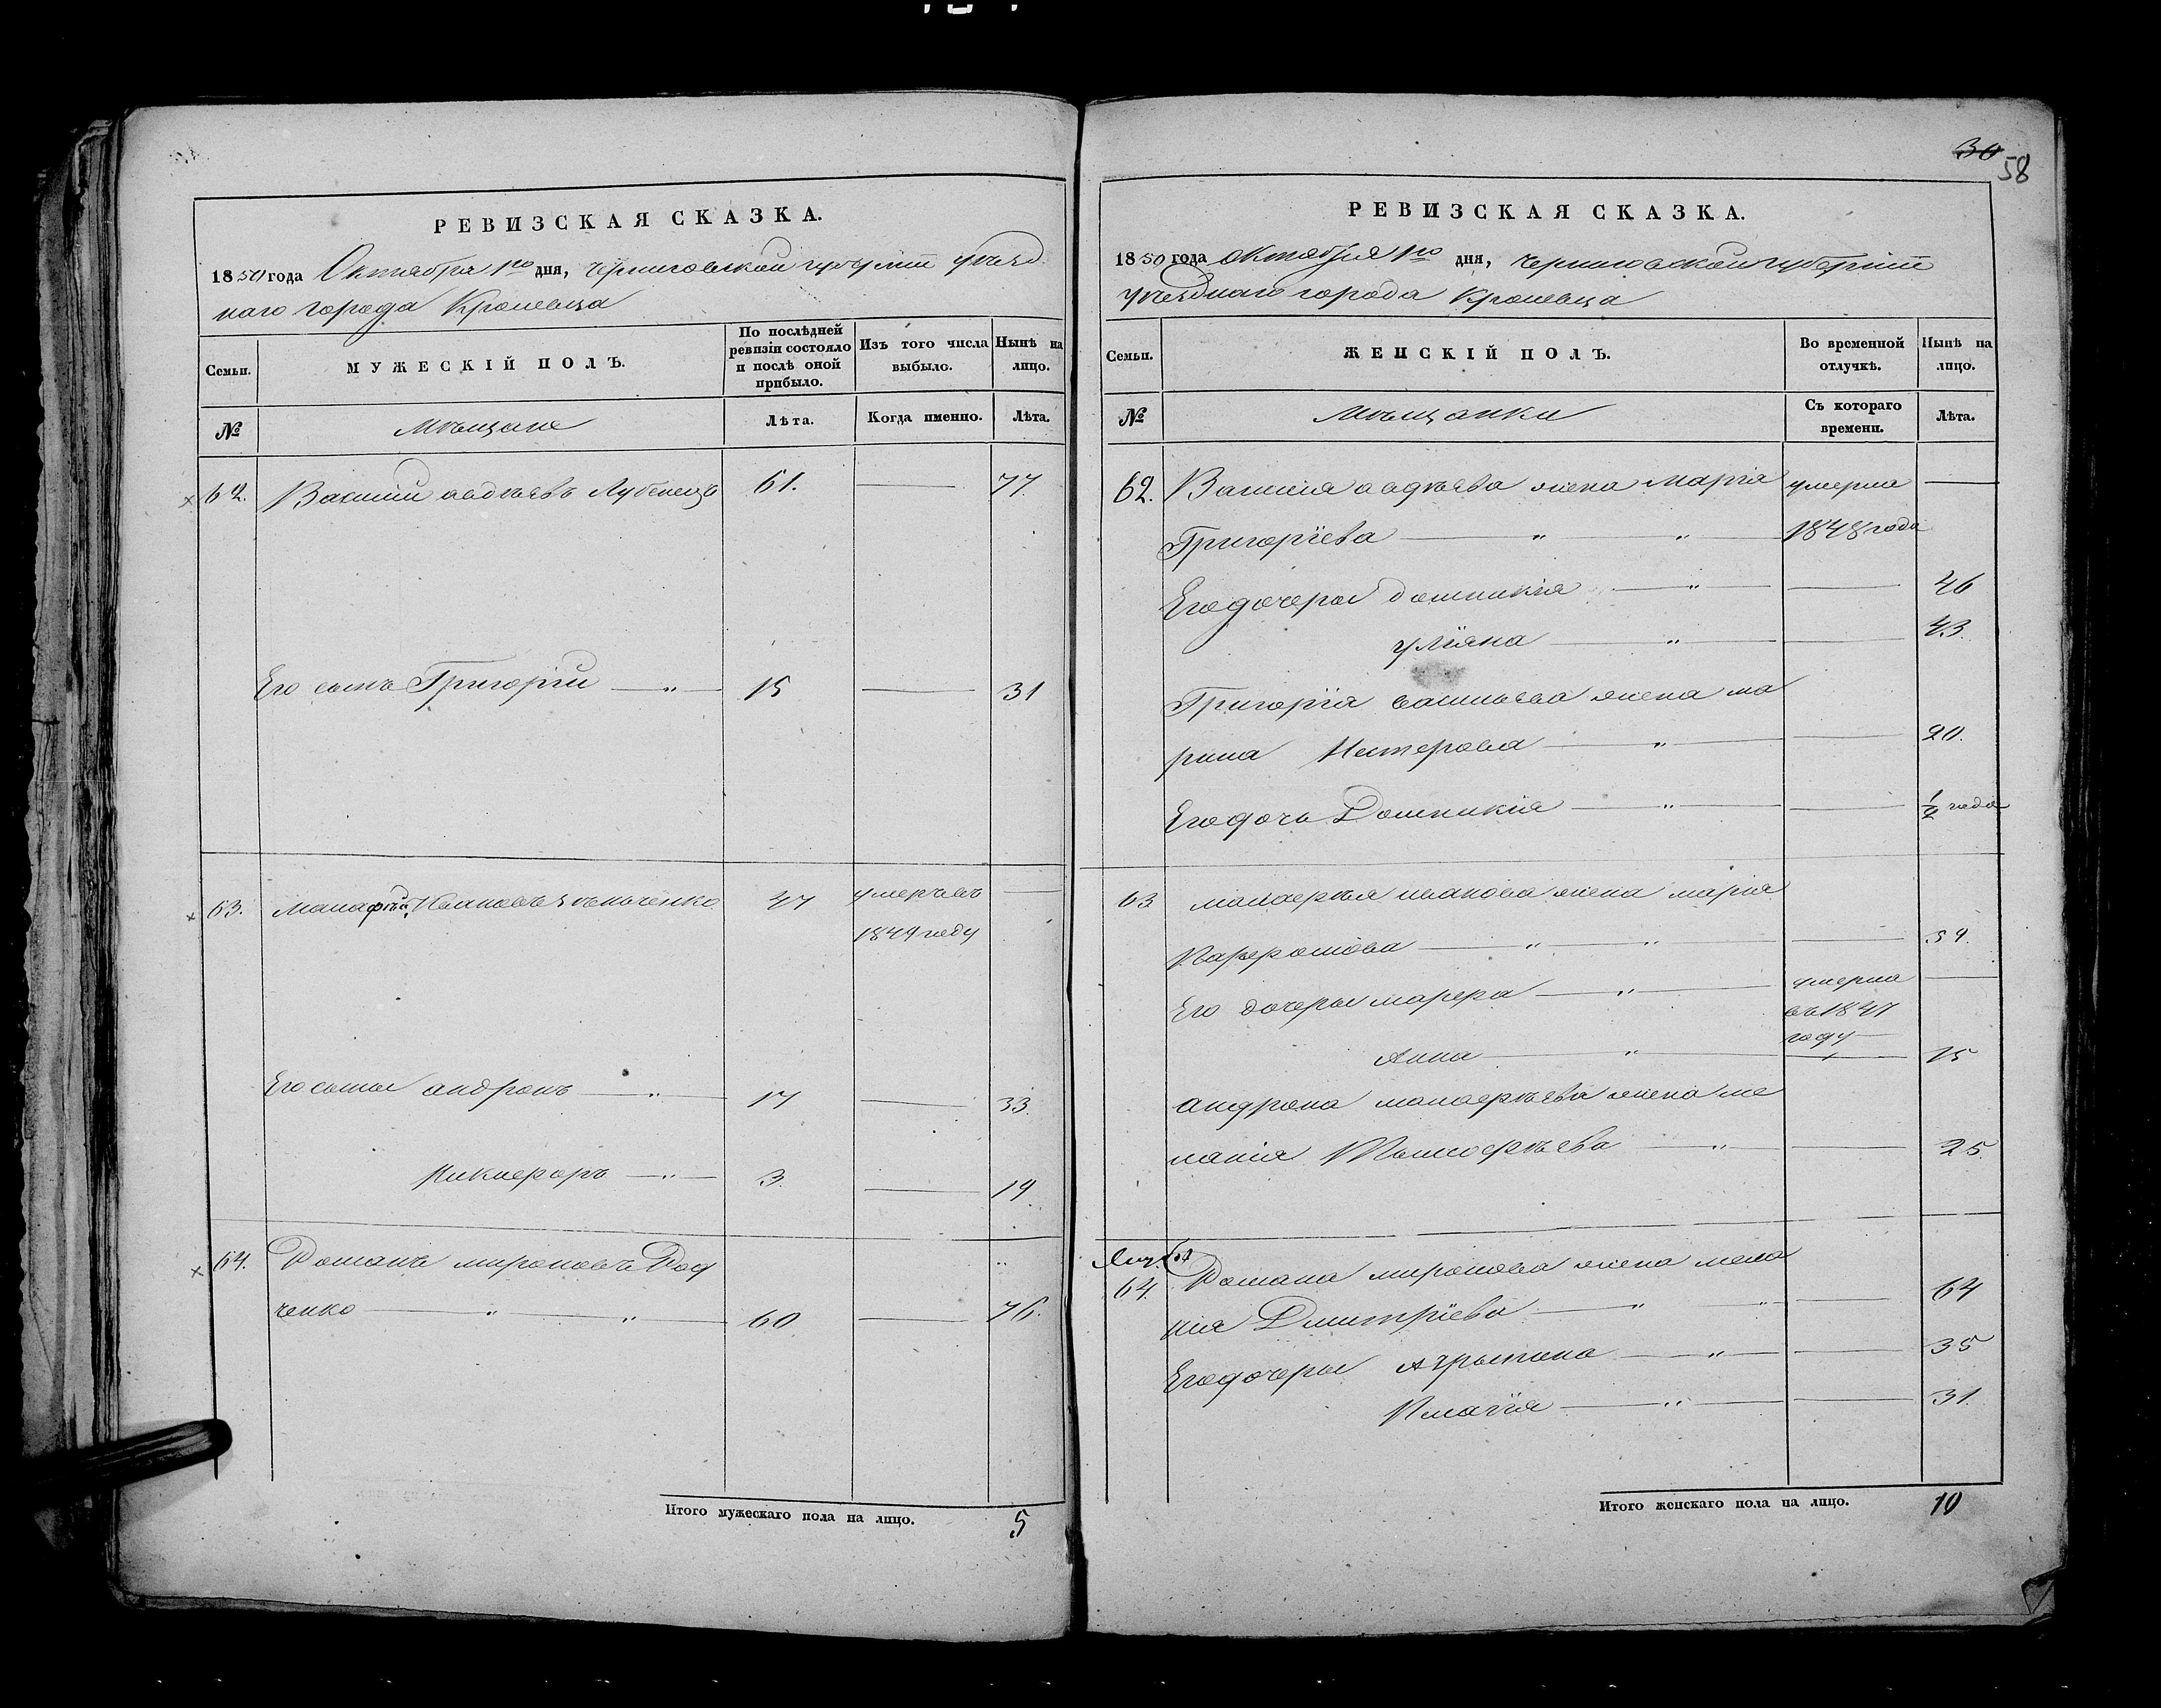 РЕВИЗСКАЯ СКАЗКА.
1850 года Октября 1го дня, Черниговской губерніи уѣзд
наго города Кролевца
Семьи.
МУЖЕСКІЙ ПОЛЪ.
По послѣдней ревизіи состояло и послѣ оной прибыло.
Изъ того числа выбыло.
Нынѣ на лицо.
№
Мѣщане
Лѣта.
Когда именно.
Лѣта.
62. Василий авдѣевъ Лубенецъ 61. 77.
Его сынъ Григорій 15 31
63. Манафѣй Ивановъ 47 умеръ въ
1849 году
Его сыны андронъ 17 33.
Никифоръ 3. 19
64. Романъ мироновъ Род
ченко 60. 76.
Итого мужескаго пола на лицо. 5
30
58
РЕВИЗСКАЯ СКАЗКА.
1850 года октября 1го дня, Черниговской губерніи
уѣзднаго города Кролевца
Семьи.
ЖЕНСКІЙ ПОЛЪ.
Во временной отлучкѣ.
Нынѣ на лицо.
№
Мѣщанки
Съ котораго времени.
Лѣта.
62. Василія авдѣева жена Марія умерла
Григоріева 1848 года
Его дочеры домникія 46
уліяна 43.
Григорія васильева жена ма
рина Нестерова 20.
Его дочь Домникія 1/2 года
63 манафѣя иванова жена марія
Парфомова 54.
Его дочеры марфа умерла
въ 1847
году
Анна 15
андрона манафѣева жена ме
ланія Тимофѣева 25.
64
64. Романа миронова жена мела
нія Дмитріева 64
Его дочеры Агрыпина 35
31.
Итого женскаго пола на лицо. 10